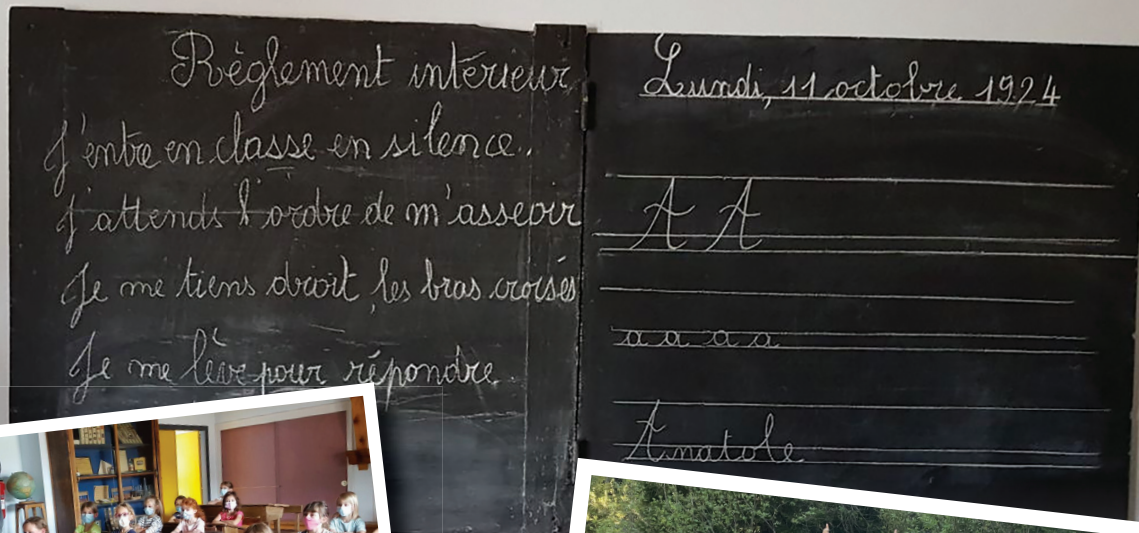 Règlement intérieur
J'entre en classe en silence.
J'attends l'ordre de m'asseoir
Je me tiens droit, les bras croisés
Je me lève pour répondre
Lundi, 11 octobre 1924
A A
a a a a
Anatole